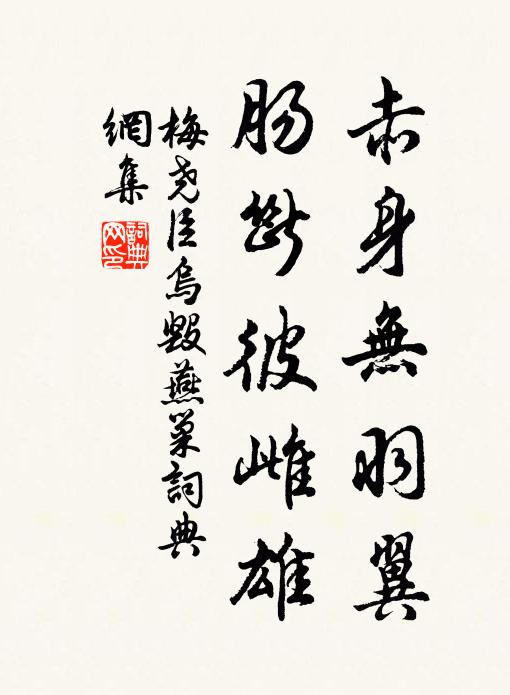 赤身無羽翼
腸斷彼雌雄
梅堯臣烏毀燕巢詞典
網集
詞典
网印